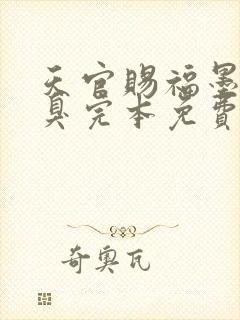 天官赐福墨
臭完本免费
奇奥瓦